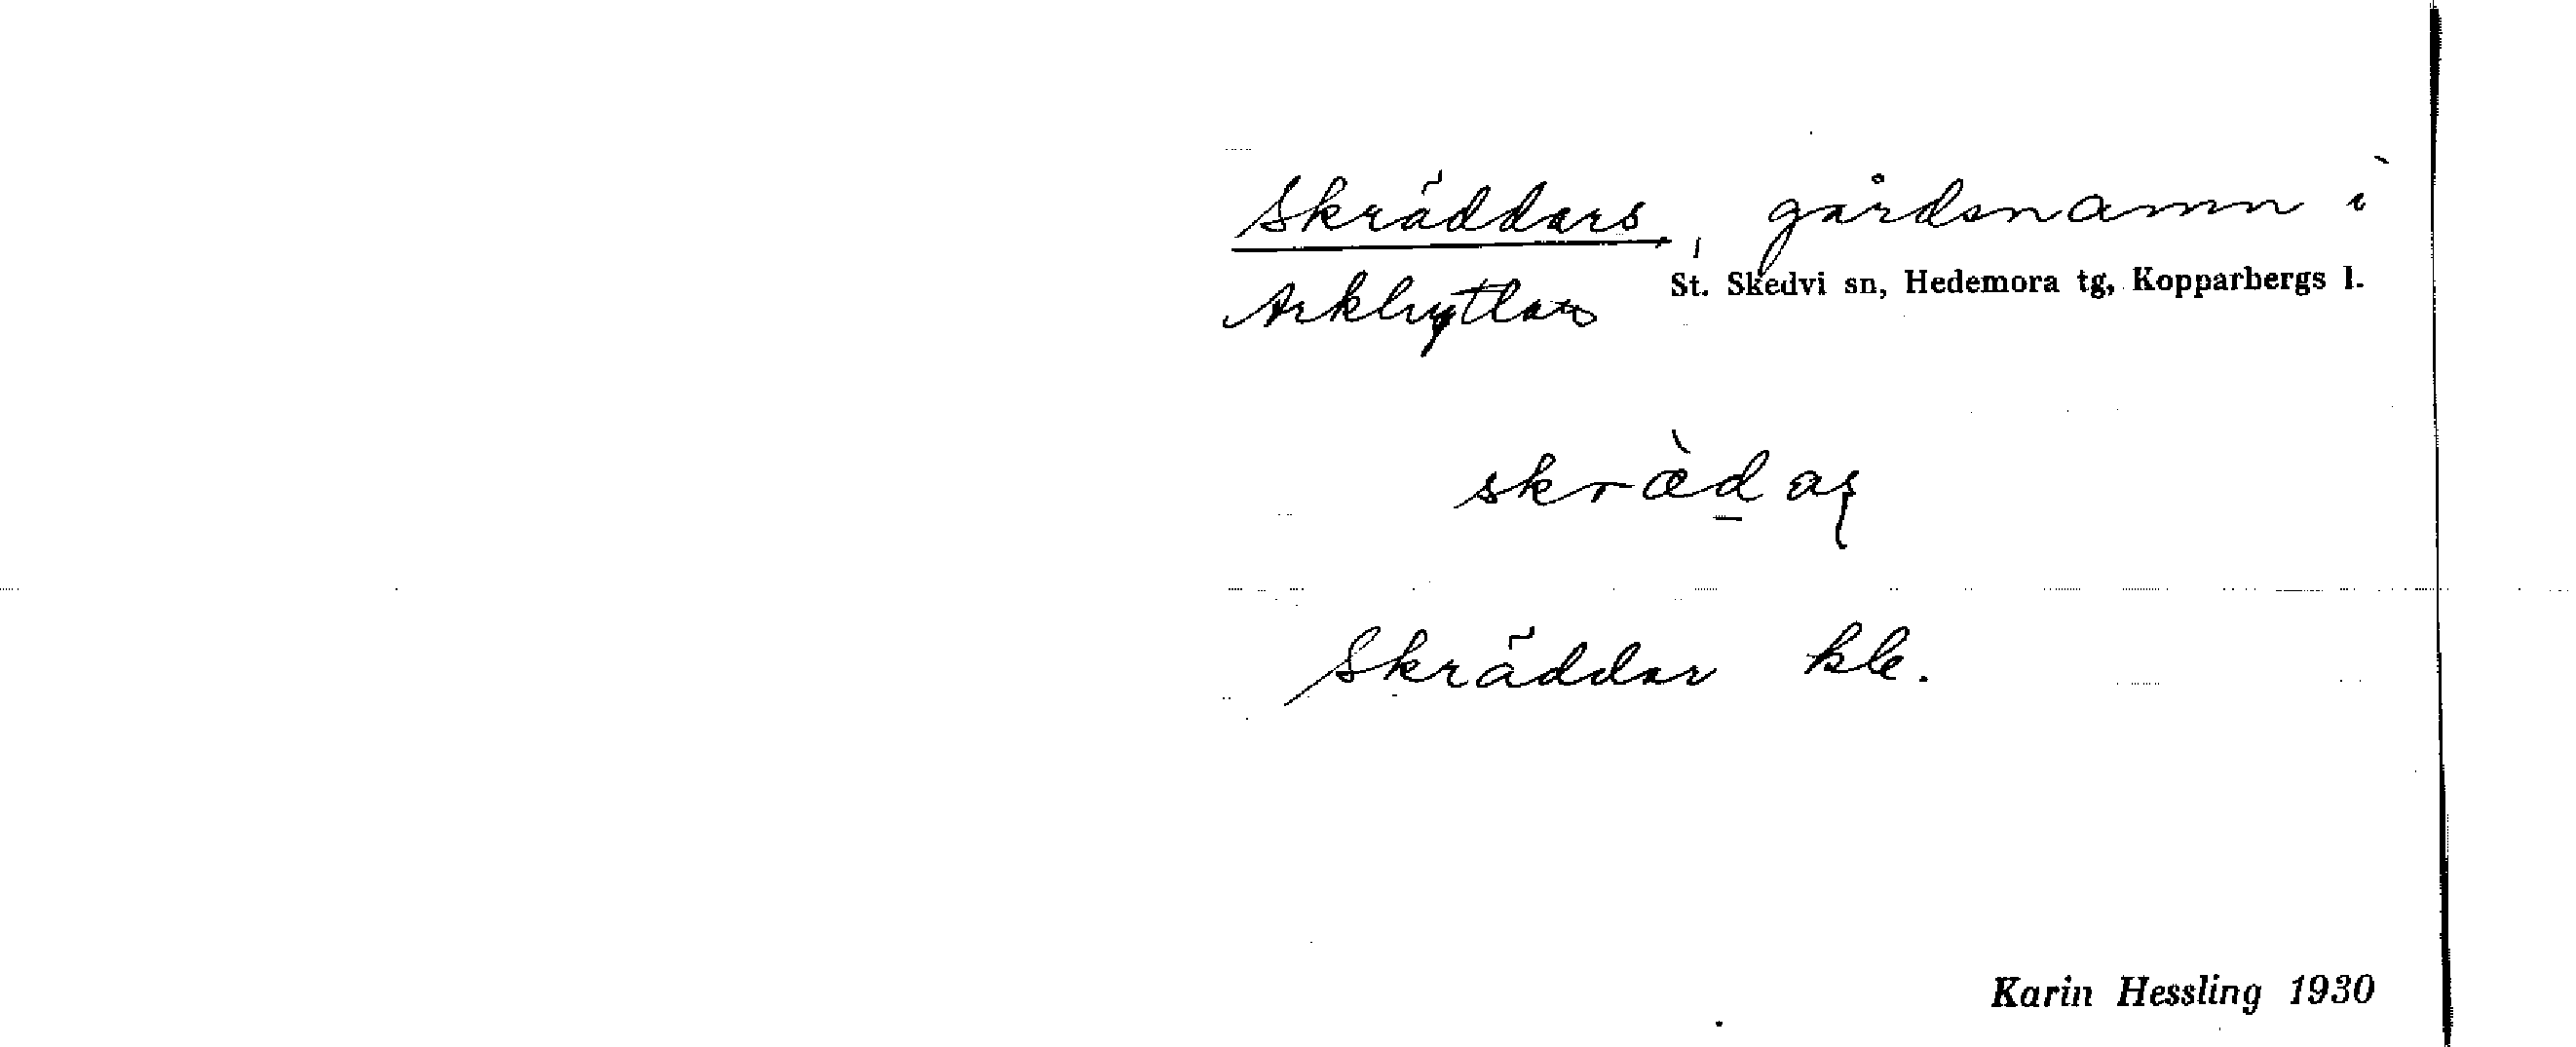 Skräddars, gårdsnamn i
Arkhyttan St. Skedvi sn, Hedemora tg, Kopparbergs l.
skræ̀d̲aș
Skräddar kle.
Karin Hessling 1930